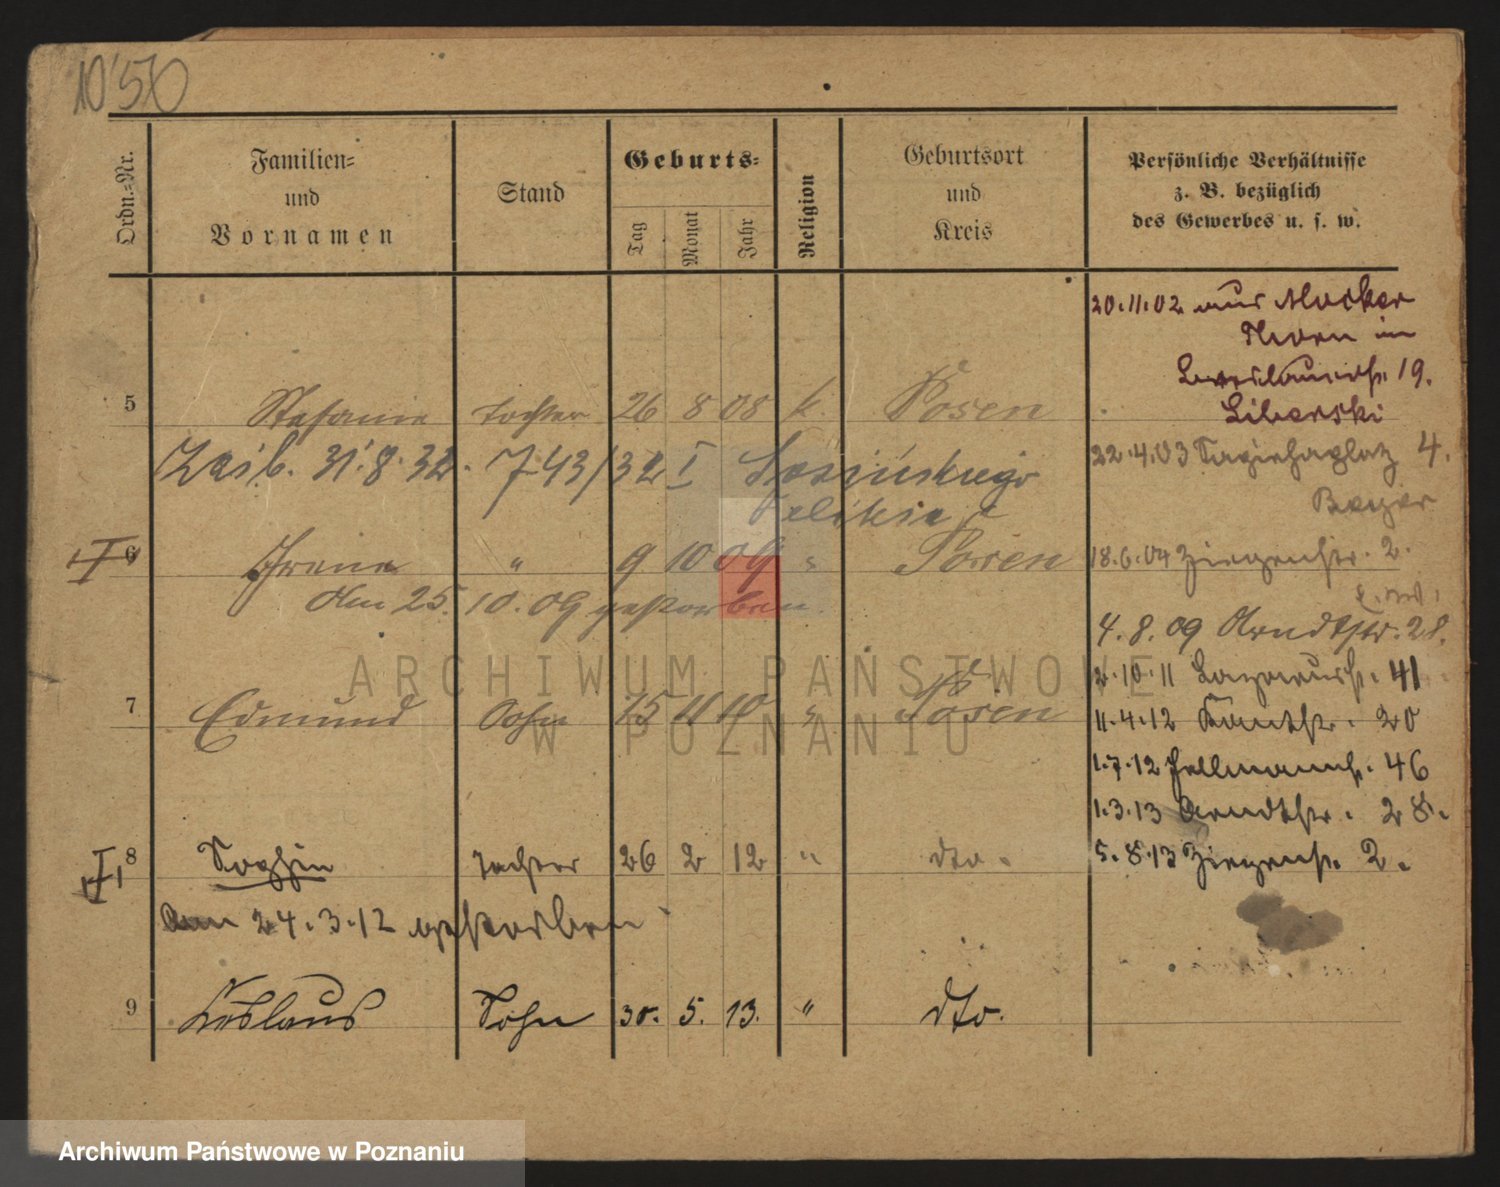 1050
Ordn.=Nr.
Familien=
und
Vornamen
Stand
Geburts=
Tag
Monat
Jahr
Religion
Geburtsort
und
Kreis
Persönliche Verhältnisse
z. B. bezüglich
des Gewerbes u. s. w.
20.11.02 aus Mocker
Thorn in
19.
Liberski
5 Stefanie Tochter 26 8 08 k. Posen
31.8.32. 743/32 I
22.4.03 Sapiehaplatz 4.
Beyer
6 Irene " 9 10 09 " Posen
18.6.04 Ziegenstr. 2.
Am 25. 10. 09 gestorben.
4.8.09 Arndtstr. 28.
2.10.11 41
7 Edmund Sohn 15 11 10 " Posen
11.4.12 20
1.7.12 46
1.3.13 Arndtstr. 28.
8 Sophie Tochter 26 2 12 " dto.
5.8.13 Ziegenstr. 2.
Am 24.3.12 gestorben
9 Sohn 30. 5. 13. " dto.
ARCHIWUM PAŃSTWOWE
W POZNANIU
Archiwum Państwowe w Poznaniu